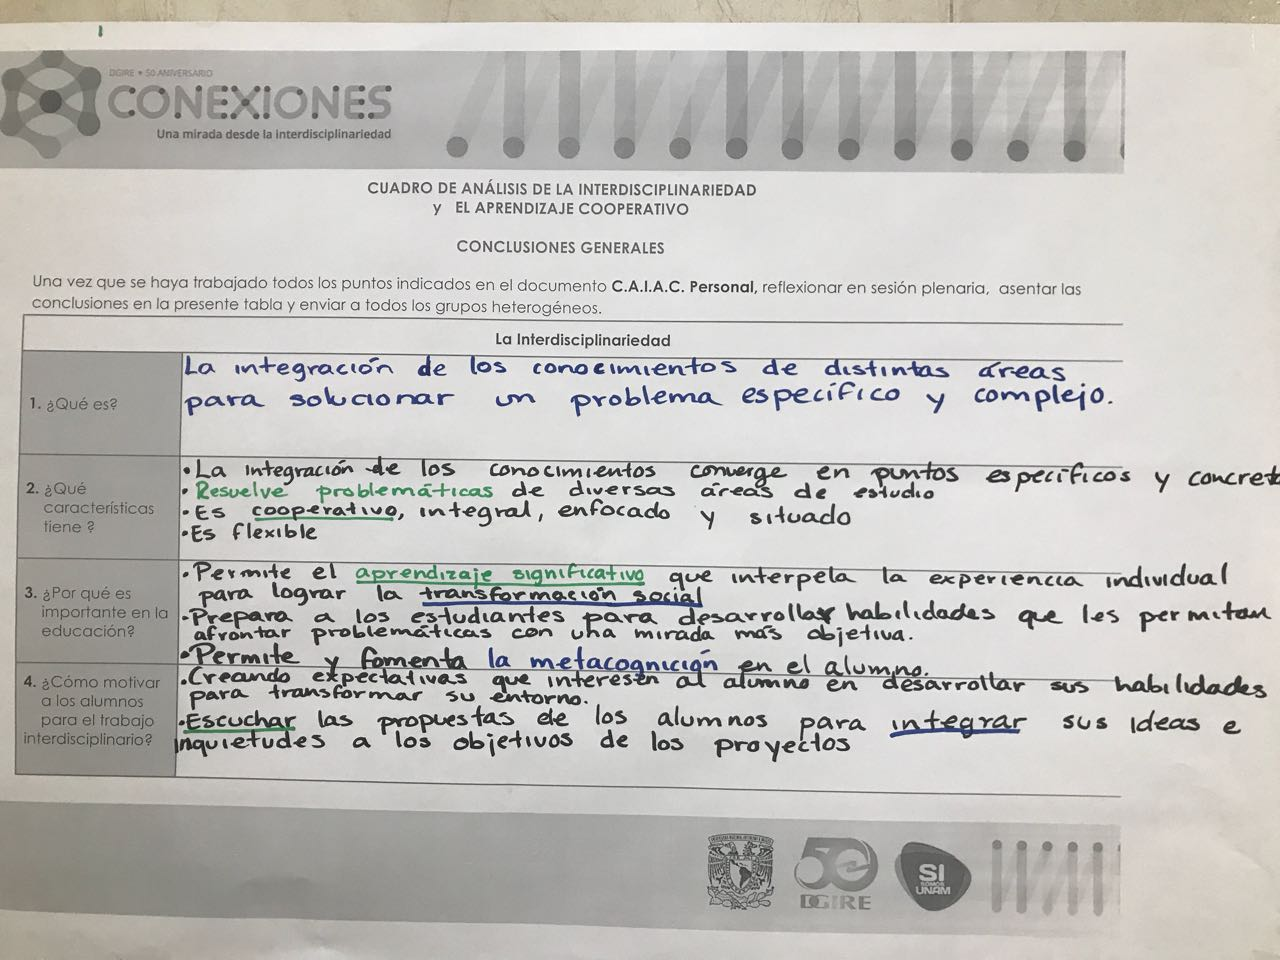 DGIRE • 50 ANIVERSARIO
CONEXIONES
Una mirada desde la interdisciplinariedad
CUADRO DE ANÁLISIS DE LA INTERDISCIPLINARIEDAD
y EL APRENDIZAJE COOPERATIVO
CONCLUSIONES GENERALES
Una vez que se haya trabajado todos los puntos indicados en el documento C.A.I.A.C. Personal, reflexionar en sesión plenaria, asentar las
conclusiones en la presente tabla y enviar a todos los grupos heterogéneos.
La Interdisciplinariedad
1. ¿Qué es?
La integración de los conocimientos de distintas áreas
para solucionar un problema específico y complejo.
2. ¿Qué
características
tiene ?
• La integración de los conocimientos converge en puntos específicos y concret
• Resuelve problemáticas de diversas áreas de estudio
• Es cooperativo, integral, enfocado y situado
• Es flexible
3. ¿Por qué es
importante en la
educación?
• Permite el aprendizaje significativo que interpela la experiencia individual
para lograr la transformación social
• Prepara a los estudiantes para desarrollar habilidades que les permitan
afrontar problemáticas con una mirada más objetiva.
• Permite y fomenta la metacognición en el alumno.
4. ¿Cómo motivar
a los alumnos
para el trabajo
interdisciplinario?
• Creando expectativas que interesen al alumno en desarrollar sus habilidades
para transformar su entorno.
• Escuchar las propuestas de los alumnos para integrar sus ideas e
inquietudes a los objetivos de los proyectos
50
DGIRE
SI
SOMOS
UNAM